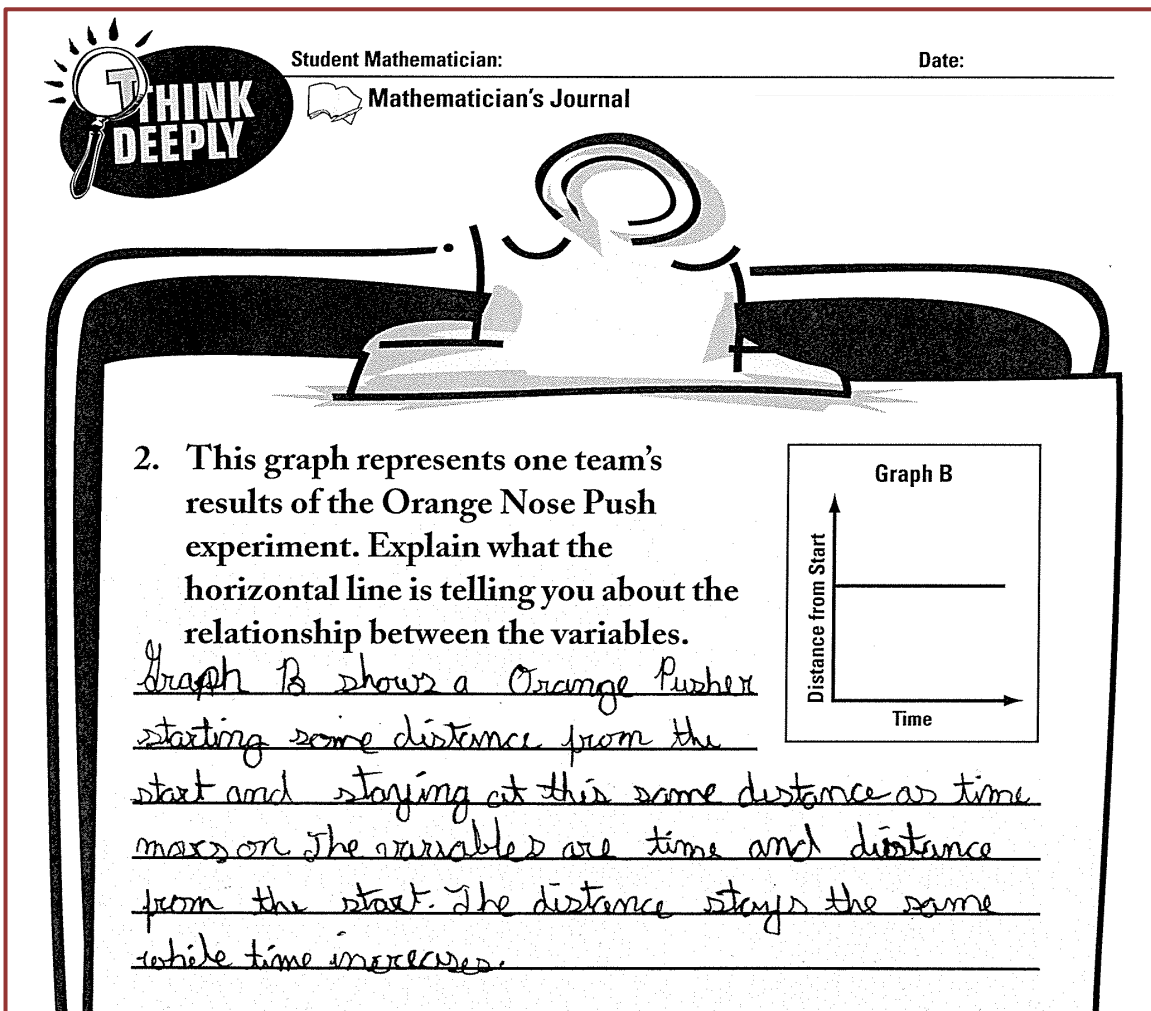 THINK
DEEPLY
Student Mathematician:
Date:
Mathematician's Journal
2. This graph represents one team's
results of the Orange Nose Push
experiment. Explain what the
horizontal line is telling you about the
relationship between the variables.
Graph B
Distance from Start
Time
Graph B shows a Orange Pusher
starting some distance from the
start and staying at this same distance as time
on. The variables are time and distance
from the start. The distance stays the same
while time increases.